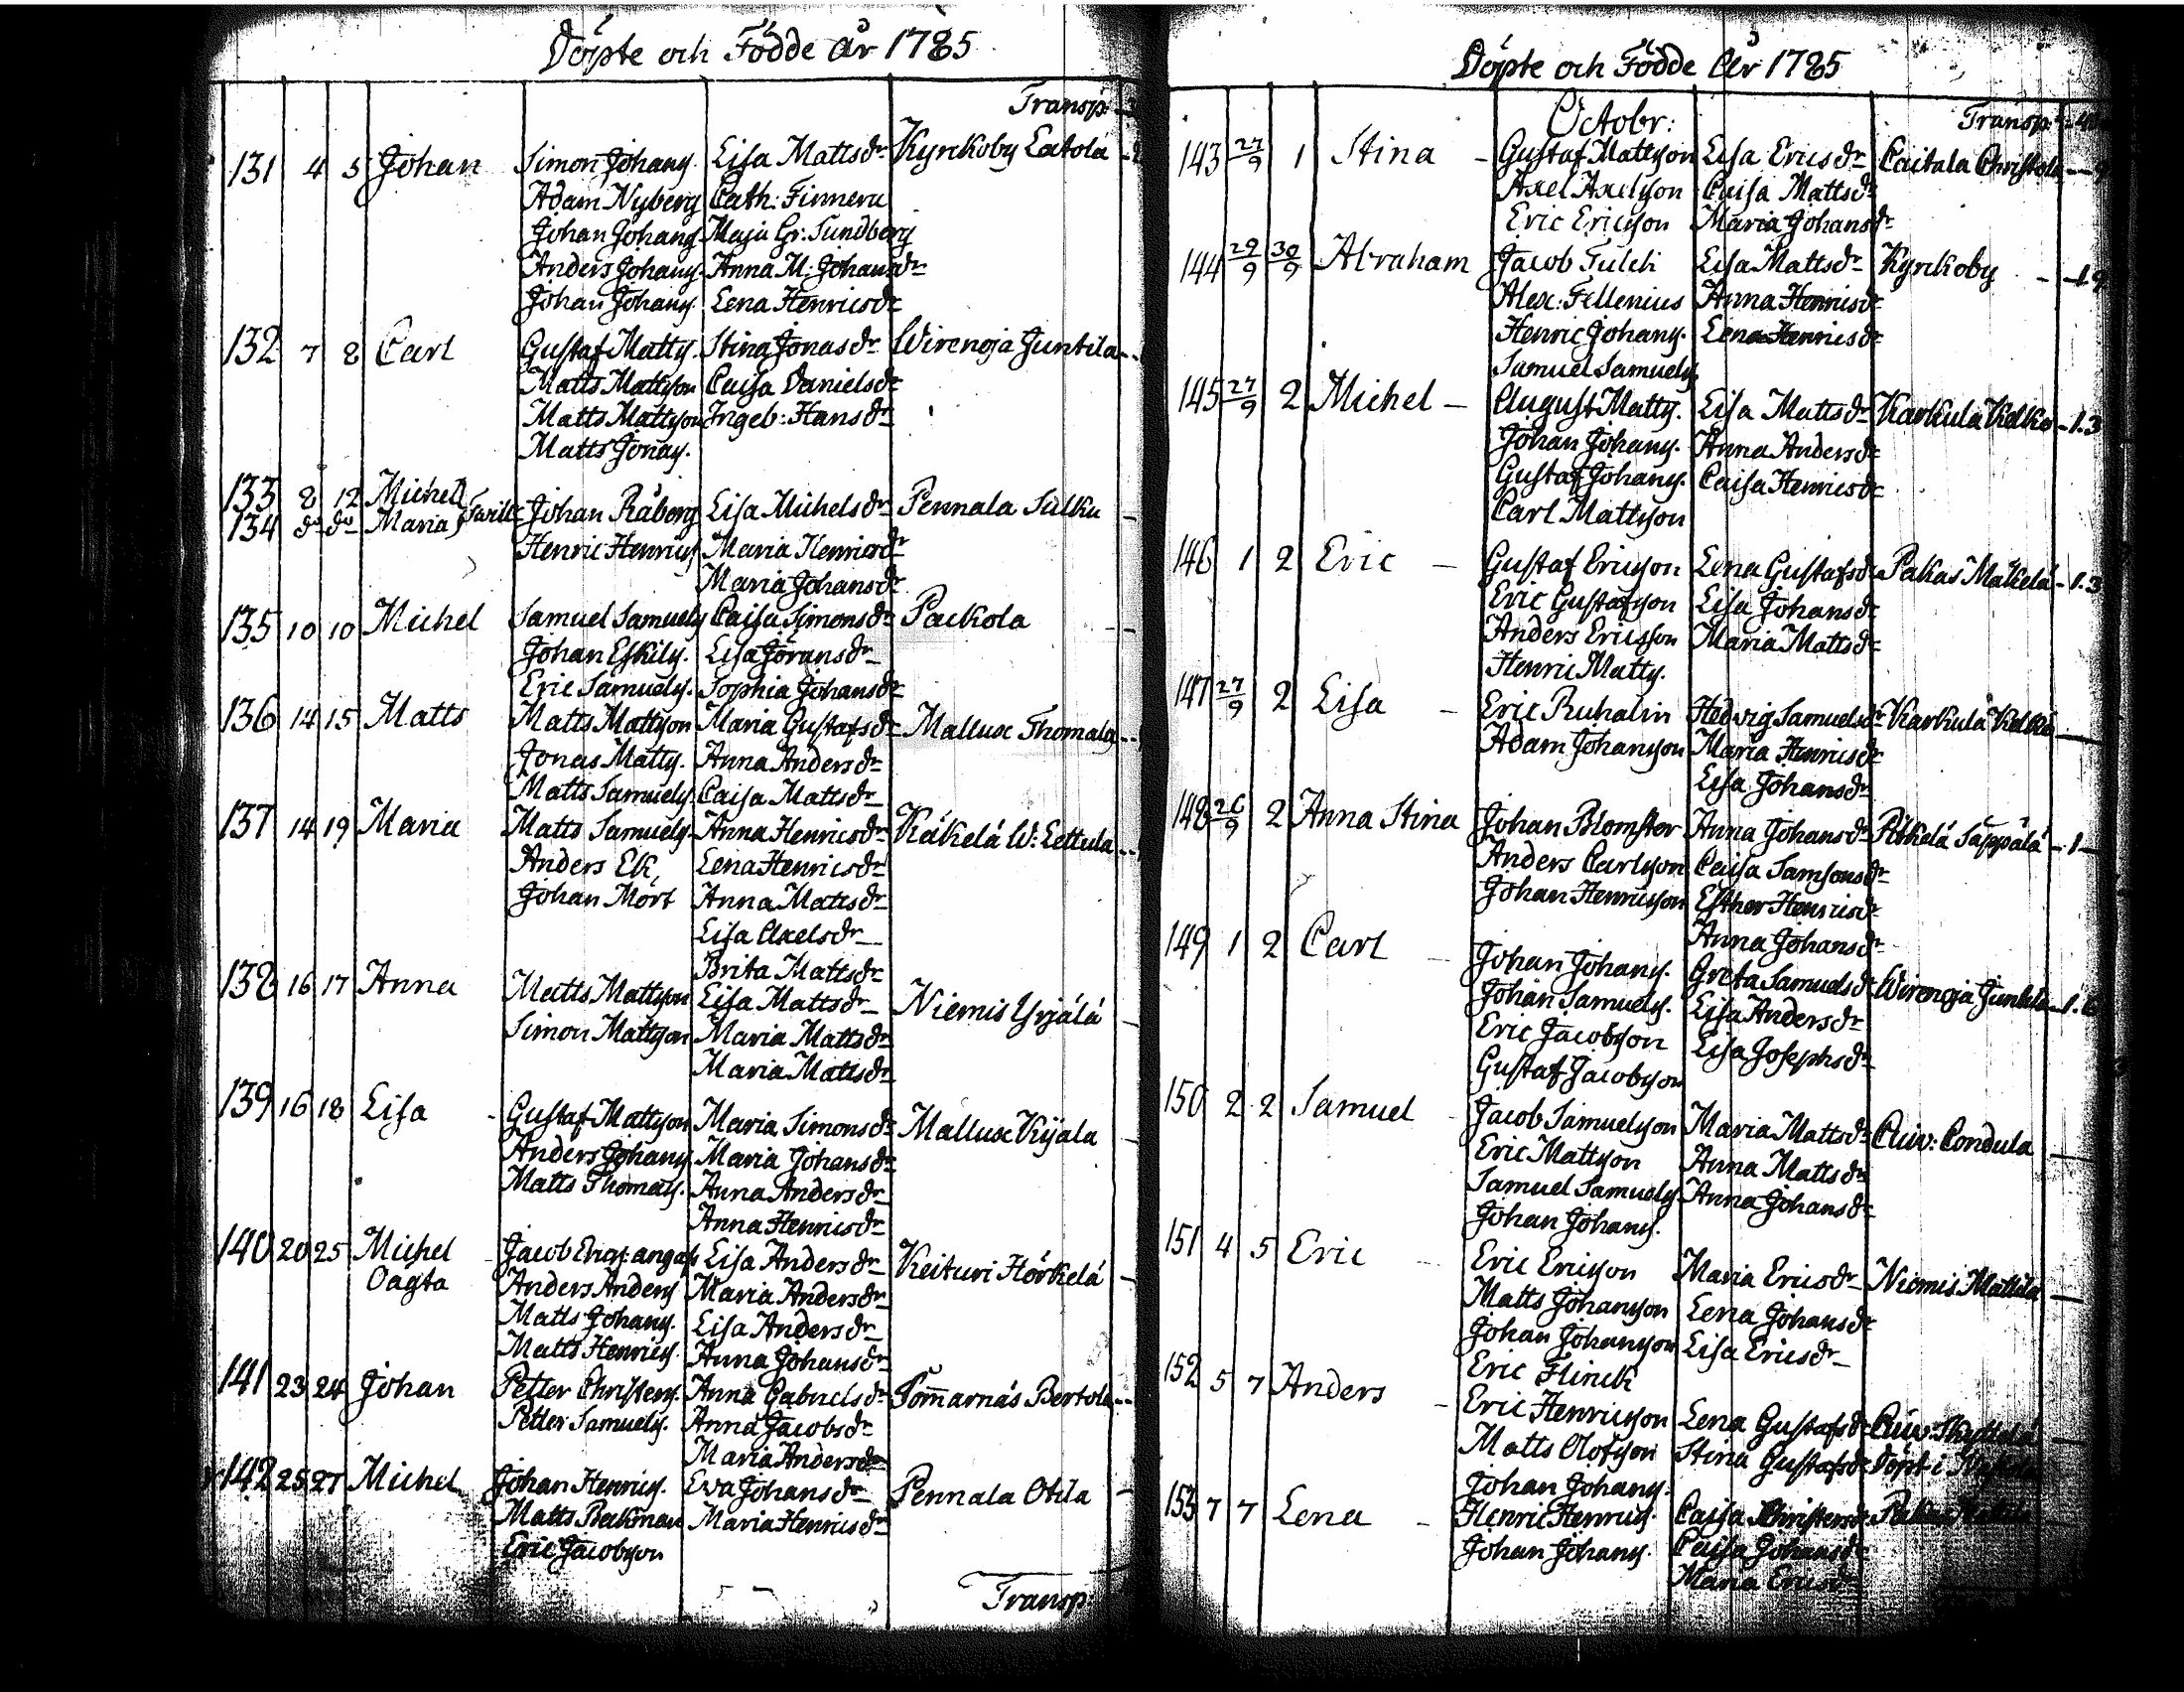 Döpte och Födde År 1785
Transp:
131 4 5 Johan Simon Johanss. Lisa Mattsdr Kyrckoby Latola
Adam Nyberg Cath: Finnera
Johan Johanss. Maja Gr: Sundberg
Anders Johanss. Anna M: Johansdr
Johan Johanss. Lena Henricsdr
132 7 8 Carl Gustaf Mattss. Stina Jonasdr Wirenoja Juntila
Matts Mattsson Caisa Danielsdr
Matts Mattsson Ingeb: Hansdr
Matts Jonass.
133 8 12 Michel
134 do do Maria Johan Råberg Lisa Michelsdr Pennala Sulku
Henric Henricss Maria Henricsdr
Maria Johansdr
135 10 10 Michel Samuel Samuelss Caisa Simonsdr Packola
Johan Eskilss. Lisa Göransdr
Eric Samuelss. Sophia Johansdr
136 14 15 Matts Matts Mattsson Maria Gustafsdr Mallusc Thomala
Jonas Mattss. Anna Andersdr
Matts Samuelss. Caisa Mattsdr
137 14 19 Maria Matts Samuelss. Anna Henricsdr Käkelä W: Lettula
Anders Elk, Lena Henricsdr
Johan Mört Anna Mattsdr
Lisa Axelsdr
Brita Mattsdr
138 16 17 Anna Matts Mattsson Lisa Mattsdr Niemis Yrjälä
Simon Mattsson Maria Mattsdr
Maria Mattsdr
139 16 18 Lisa - Gustaf Mattsson Maria Simonsdr Mallusc Kijala
Anders Johanss Maria Johansdr
Matts Thomass. Anna Andersdr
Anna Henricsdr
140 20 25 Michel Jacob Lisa Andersdr Keituri Hörkelä
Oagta Anders Anderss Maria Andersdr
Matts Johanss. Lisa Andersdr
Matts Henricss. Anna Johansdr
141 23 24 Johan Petter Christerss. Anna Gabrielsdr Tom̄arnäs Bertola
Petter Samuelss. Anna Jacobsdr
Maria Andersdr
142 25 27 Michel Johan Henricss. Eva Johansdr Pennala Otila
Matts Backman Maria Henricsdr
Eric Jacobsson
Transp:
Döpte och Födde År 1785
Octobr: Transp:
143 27/9 1 Stina - Gustaf Mattsson Lisa Ericsdr Caitala Christola
Axel Axelsson Caisa Mattsdr
Eric Ericsson Maria Johansdr
144 29/9 30/9 Abraham Jacob Tulck Lisa Mattsdr Kyrckoby
Alex: Fellenius Anna Henricsdr
Henric Johanss. Lena Henricsdr
Samuel Samuelss
145 27/9 2 Michel - August Mattss. Lisa Mattsdr Karkula Kelko - 1.3
Johan Johanss. Anna Andersdr
Gustaf Johanss. Caisa Henricsdr
Carl Mattsson
146 1 2 Eric - Gustaf Ericsson Lena Gustafsdr Pakas Mäkelä - 1.3
Eric Gustafsson Lisa Johansdr
Anders Ericsson Maria Mattsdr
Henric Mattss.
147 27/9 2 Lisa - Eric Ruhalin Hedvig Samuelsdr Karkula Kelko
Adam Johansson Maria Henricsdr
Lisa Johansdr
148 26/9 2 Anna Stina Johan Blomster Anna Johansdr Rökelä Säppälä - 1
Anders Carlsson Caisa Samsonsdr
Johan Henricsson Esther Henricsdr
Anna Johansdr
149 1 2 Carl - Johan Johanss. Greta Samuelsdr Wirenoja Juntila
Johan Samuelss. Lisa Andersdr
Eric Jacobsson Lisa Josephsdr
Gustaf Jacobsson
150 2 2 Samuel - Jacob Samuelsson Maria Mattsdr Cuiv: Condula
Eric Mattsson Anna Mattsdr
Samuel Samuelss Anna Johansdr
Johan Johanss.
151 4 5 Eric - Eric Ericsson Maria Ericsdr Niemis Mattila
Matts Johansson Lena Johansdr
Johan Johansson Lisa Ericsdr
Eric Flinck
152 5 7 Anders - Eric Henricsson Lena Gustafsdr Cuiv:
Matts Olofsson Stina Gustafsdr döpt i
Johan Johanss.
153 7 7 Lena - Henric Henricss. Caisa Christersdr
Johan Johanss. Caisa Johansdr
Maria Ericsdr